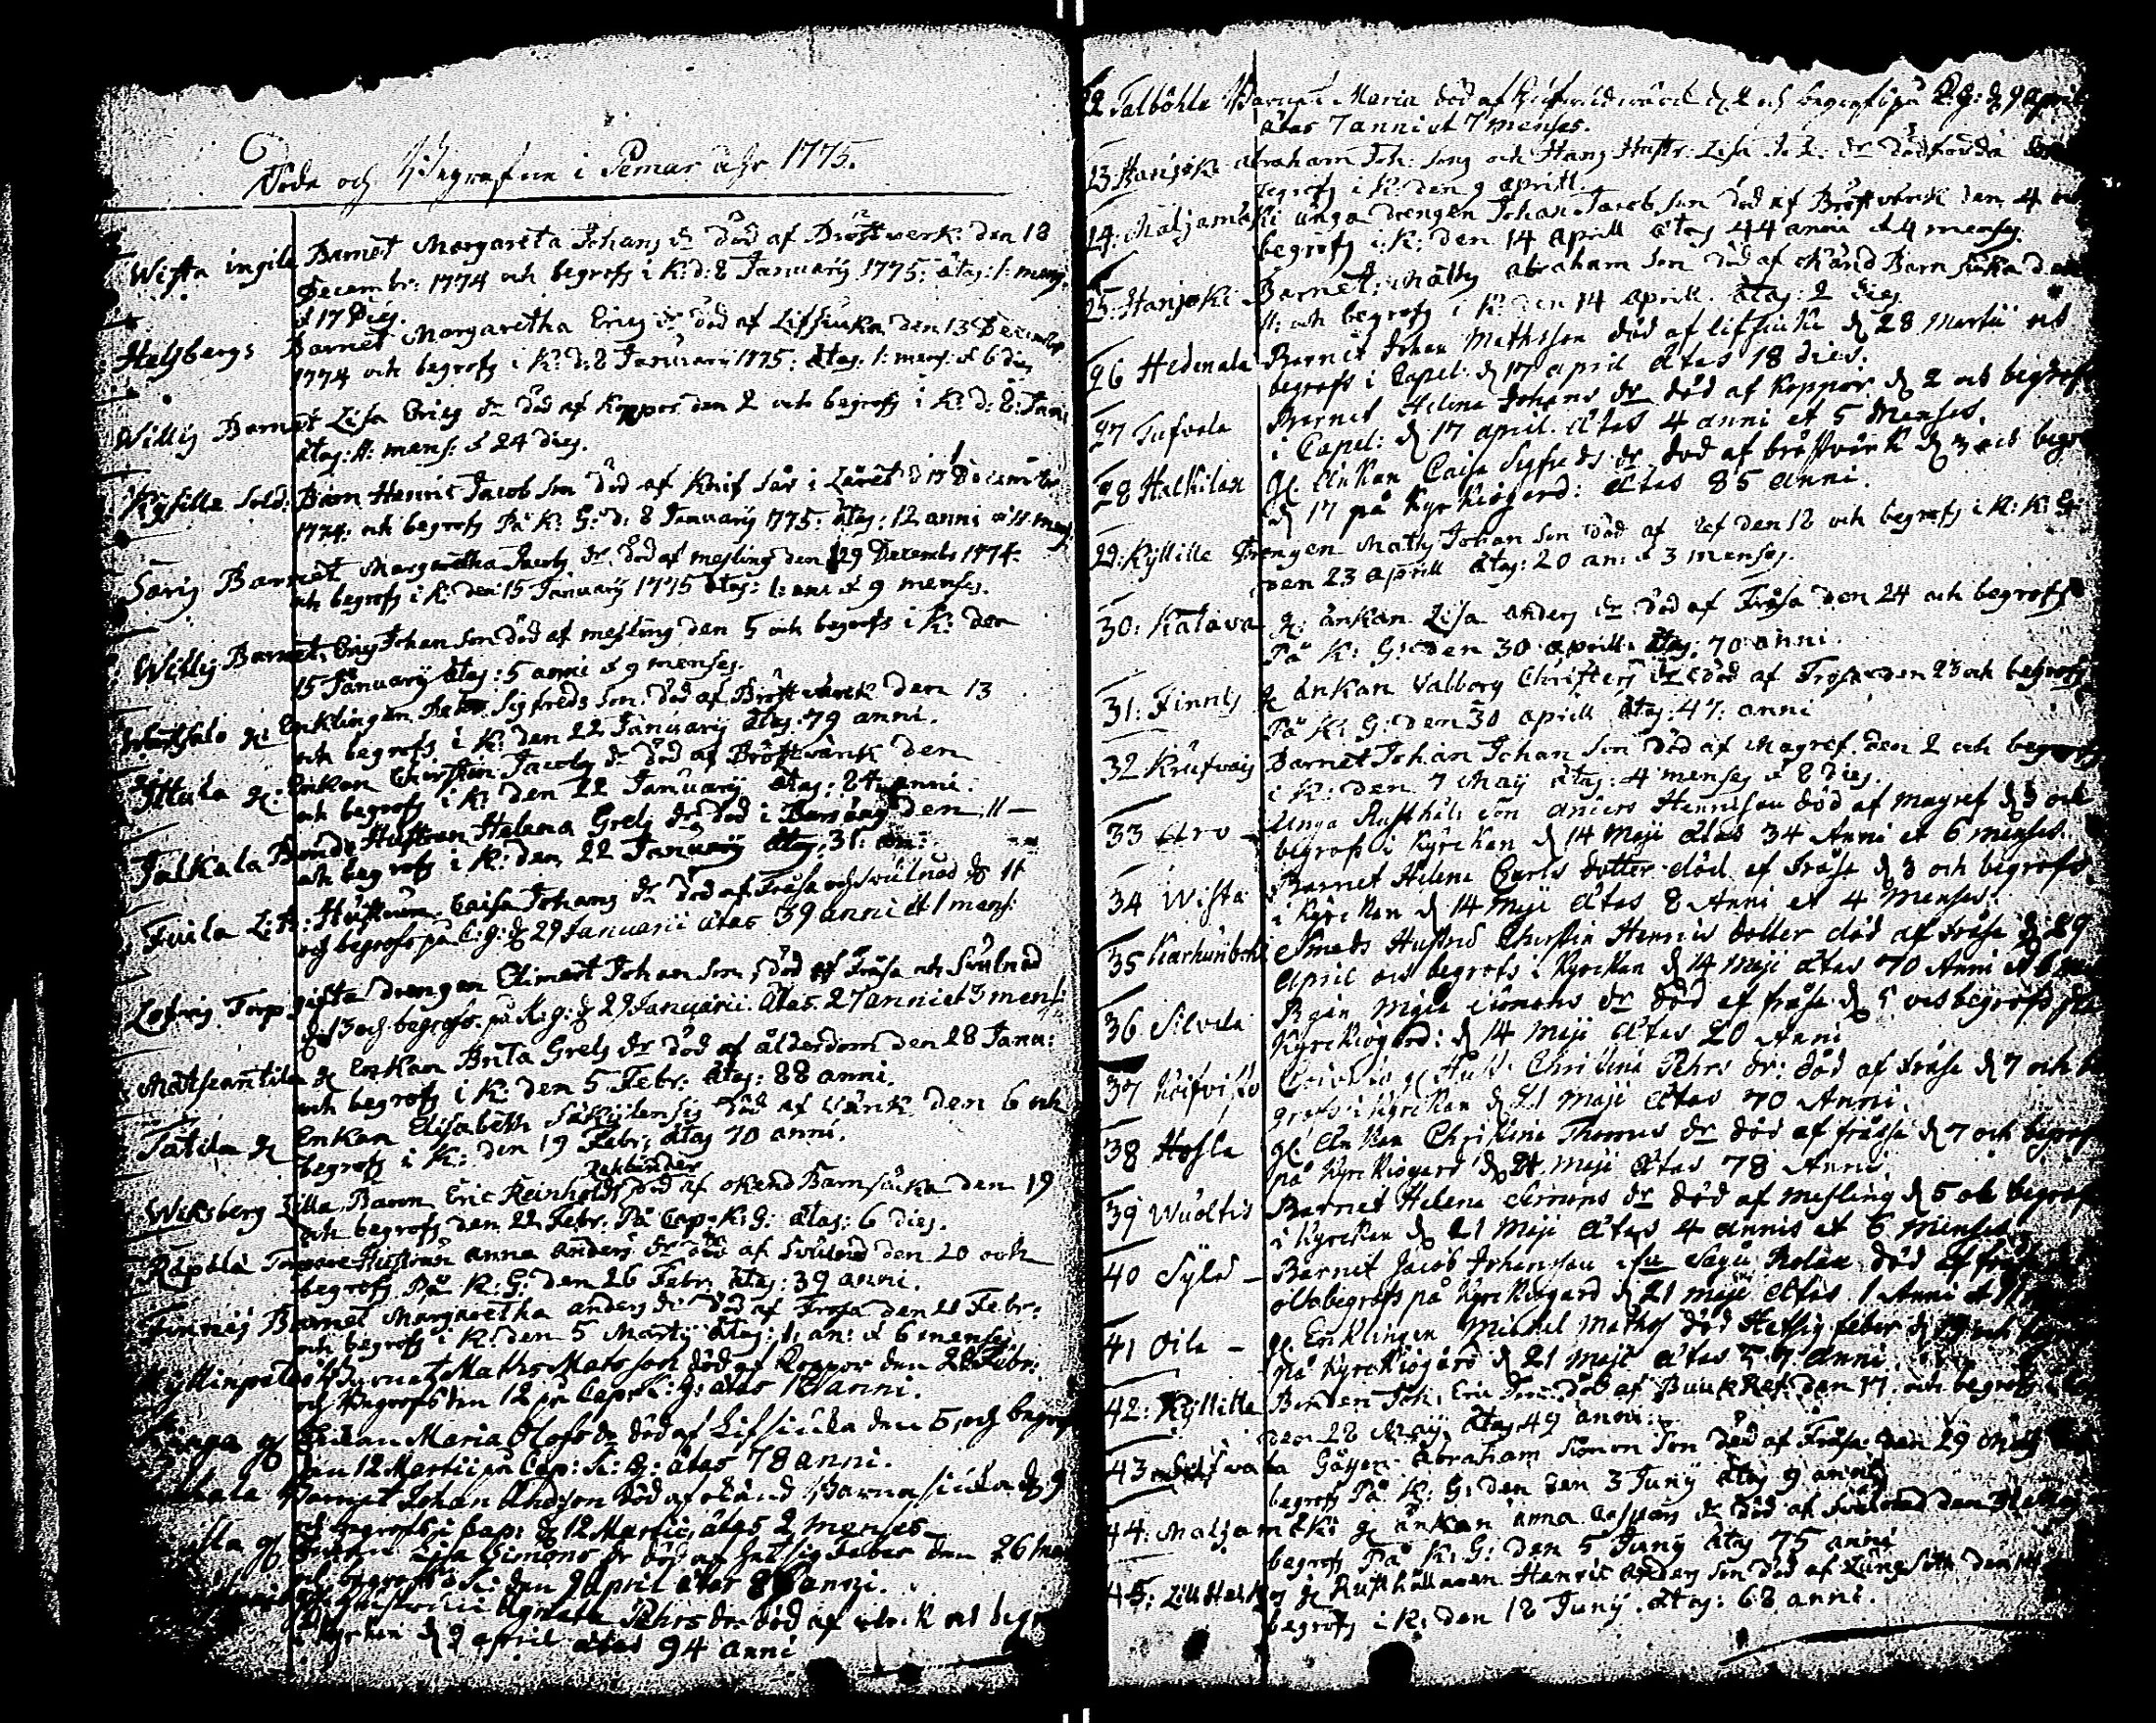 Döde och Begrafne i Pemar åhr 1775.
Wista ingila Barnet Margareta Johans dr död af Bröstwerk: den 18
Decembr: 1774 och begrofs i K: d: 8 January 1775: ætas: 1: mens:
et 17 Dies.
Helsbergs Barnet Margaretha Erics dr död af Lifsiuka den 13 Decembr
1774 och begrofs i K: d: 8 January 1775: ætas: 1: mens: et 6 dies
Willis Barnet Lisa Erics dr död af Koppor den 2 och begrofs i K: d: 8: Janu
ætas: 11: mens: et 24 dies.
Kysille Sold: Barn Henric Jacob son död af Knif sår i Låret d 17 Decembr
1774: och begrofs På K: G: d: 8 January 1775: ætas: 12 anni et 11 mens:
Saris Barnet Margaretha Jacobs dr död af mesling den 29 Decembr 1774
och begrofs i K: den 15 January 1775 ætas: 1: ann et 9 menses.
Willis Barnet, Eric Johan son död af mesling den 5 och begrofs i K: den
15 January ætas: 5 anni et 9 menses.
gl: Enklingen Sigfreds son död af Bröst wärck den 13
och begrofs i K: den 22 January ætas 79 anni.
Ittula gl: Enkan Chirstin Jacobs dr död af Bröst wärck den
och begrofs i K: den 22 January ætas: 84 anni.
Jalkala Bonde Hustrun Helena Grels dr död i Barnsäng den 11 –
och begrofs i K: den 22 January ætas: 31: an:
Tuila Hustrun Caisa Johans dr död af Fråsa och Svulnad d 11
och begrofs på C: g: d 29 Januarii ætas 39 anni et 1 mens:
Lofvis Torp gifta drengen Climet Johan son, död af Fråsa och Svulnad
d 13 och begrofs på K: g: d 29 Januarii. ætas. 27 anni et 3 mens:
Matseantila gl Enkan Brita Grels dr död af ålderdom den 28 Janu:
och begrofs i K: den 5 Febr: ætas: 88 anni.
Tatila gl Enkan Elisabeth död af Wänk den 6 och
begrofs i K: den 19 Febr: ætas 70 anni.
Wiksberg Lilla Baron Eric Reinhold Rehbinder död af okend Barnsiuka den 19
och begrofs den 22 Febr. På Cap: K: G: ætas: 6 dies.
Räpälä Hustrun anna anders dr död af Svulnad den 20 och
begrofs På K: G: den 26 Febr ætas: 39 anni.
Finnis Barnet Margaretha anders dr död af Frosa den 21 Febr:
och begrofs i K: den 5 Marty ætas: 1: an: et 6 menses
Barnet Maths Matsson död af Koppor den 28 Febr:
och Begrofs den 12 på Cap: K: g: ætas anni.
gl Enkan Maria Olofs dr död af Lifsiuka den 5, och begrof
den 12 Martii på Cap: K: G: ætas 78 anni.
Barnet Johan Andsson död af okänd Barnasiuka d 9
och begrofs i Cap: d 12 Martii, ætas 2 menses
gl Lisa Simons dr död af hetsig Feber den 26 Mar
och begrofs i K: den 9 April ætas anni.
Agneta Pehrs dr död af och begr
i Kyrkan d 9 april ætas 94 anni
22 Talböhle Barnet Maria död af d 2 och begrofs på K: g: d 9 April
ætas 7 anni et 7 menses.
23: Hanjoki abraham Joh: Sons och Hans Hustr: Lisa dr dödfödda
begrofs i K: den 9 Aprill.
24: Maljamäki unga drengen Johan Jacob son död af Bröst värck den 4 och
begrofs i: K: den 14 Aprill ætas 44 anni et 4 menses.
25: Hanjoki Barnet: Maths Abraham son död af okänd Barn siuka d
11: och begrofs i K: den 14 Aprill. ætas: 2 dies
26 Hedmala Barnet Johan Mathsson död af lifsiuka d 28 Martii och
begrofs i Capel: d 17 april ætas 18 dies.
27 Tufvala Barnet Helena Johans dr död af Koppor d 2 och begrof
i Capel: d 17 april ætas 4 anni et 5 Menses.
28 Halkilax gl. Enkan Caisa Sigfreds dr död af bröstvärck d 3 och begro
d 17 på Kyrkiogård: ætas 85 anni.
29: Kyllille Drengen Maths Johan son död af den 12 och begrofs i K: K: G:
den 23 Aprill ætas: 20 an: et 3 menses.
30: Katava gl: änkan Lisa Anders dr död af Fråsa den 24 och begrofs
På K: G: den 30 aprill: ætas: 70 anni.
31: Finnis gl änkan Valborg Christers dr död af Frosa den 23 och begrofs
På K: G: den 30 aprill ætas: 47: anni
32 Krufvais Barnet Johan Johan son död af Magref den 2 och begrofs
i K: den 7 May ætas: 4 menses et 8 dies.
33 Arvo – Unga Rusthåls son anders Henrisson död af magref d 3 och
begrofs i Kyrckan d 14 Maji ætas 34 Anni et 6 menses.
34 Wista Barnet Helena Carls dotter död af fråsa d 3 och begrofs
i Kyrckan d 14 Maji ætas 8 Anni et 4 menses.
35 Karhunböhle Smeds Hustru Chirstin Henrics dotter död af fråsa d 29
April och begrofs i Kyrckan d 14 Maji ætas 70 Anni et 6
36 Silvola Pigan Maja Simons dr död af fråsa d 5 och begrofs på
Kyrckiogård: d 14 Maji ætas 20 Anni
37 gl Hust: Christina Pehrs dr: död af fråsa d 7 och be
grofs i Kyrckan d 21 Maji ætas 70 Anni.
38 Hosla gl: Enkan Christina Thomas dr död af fråssa d 7 och begrof
på Kyrckiogård d 21 Maji ætas 78 Anni
39 Wuoltis Barnet Helena Simons dr död af Mesling d 5 och begrof
i Kyrckan d 21 Maji ætas 4 annis et 6 Menses
40 Sylvö – Barnet Jacob Johansson död af
och begrofs på Kyrckiogård d 21 Maji ætas 1 Anni et
41 Oila – gl. Enklingen Michel Maths död Hetsig feber d och
på Kyrckiogård d 21 Maji ætas anni
42: Kyllille Bonden Joh: Eric Son: död af Buuk Ref: den 17 och begrofs
den 28 May, ætas 49 anni:
43 Gossen Abraham Simon Son död af Fråsa den 29 och
begrofs På K: G: den 3 Juny ætas 9 anni
44: Maljamäki gl änkan anna Caspars dr död af Svulnad den
begrofs På K: G: den 5 Juny ætas 75 anni
45: Lill Heikoi gl Rusthållaren Henric Anders son död af Lungsott den
begrofs i K: den 18 Juny. ætas: 68 anni.